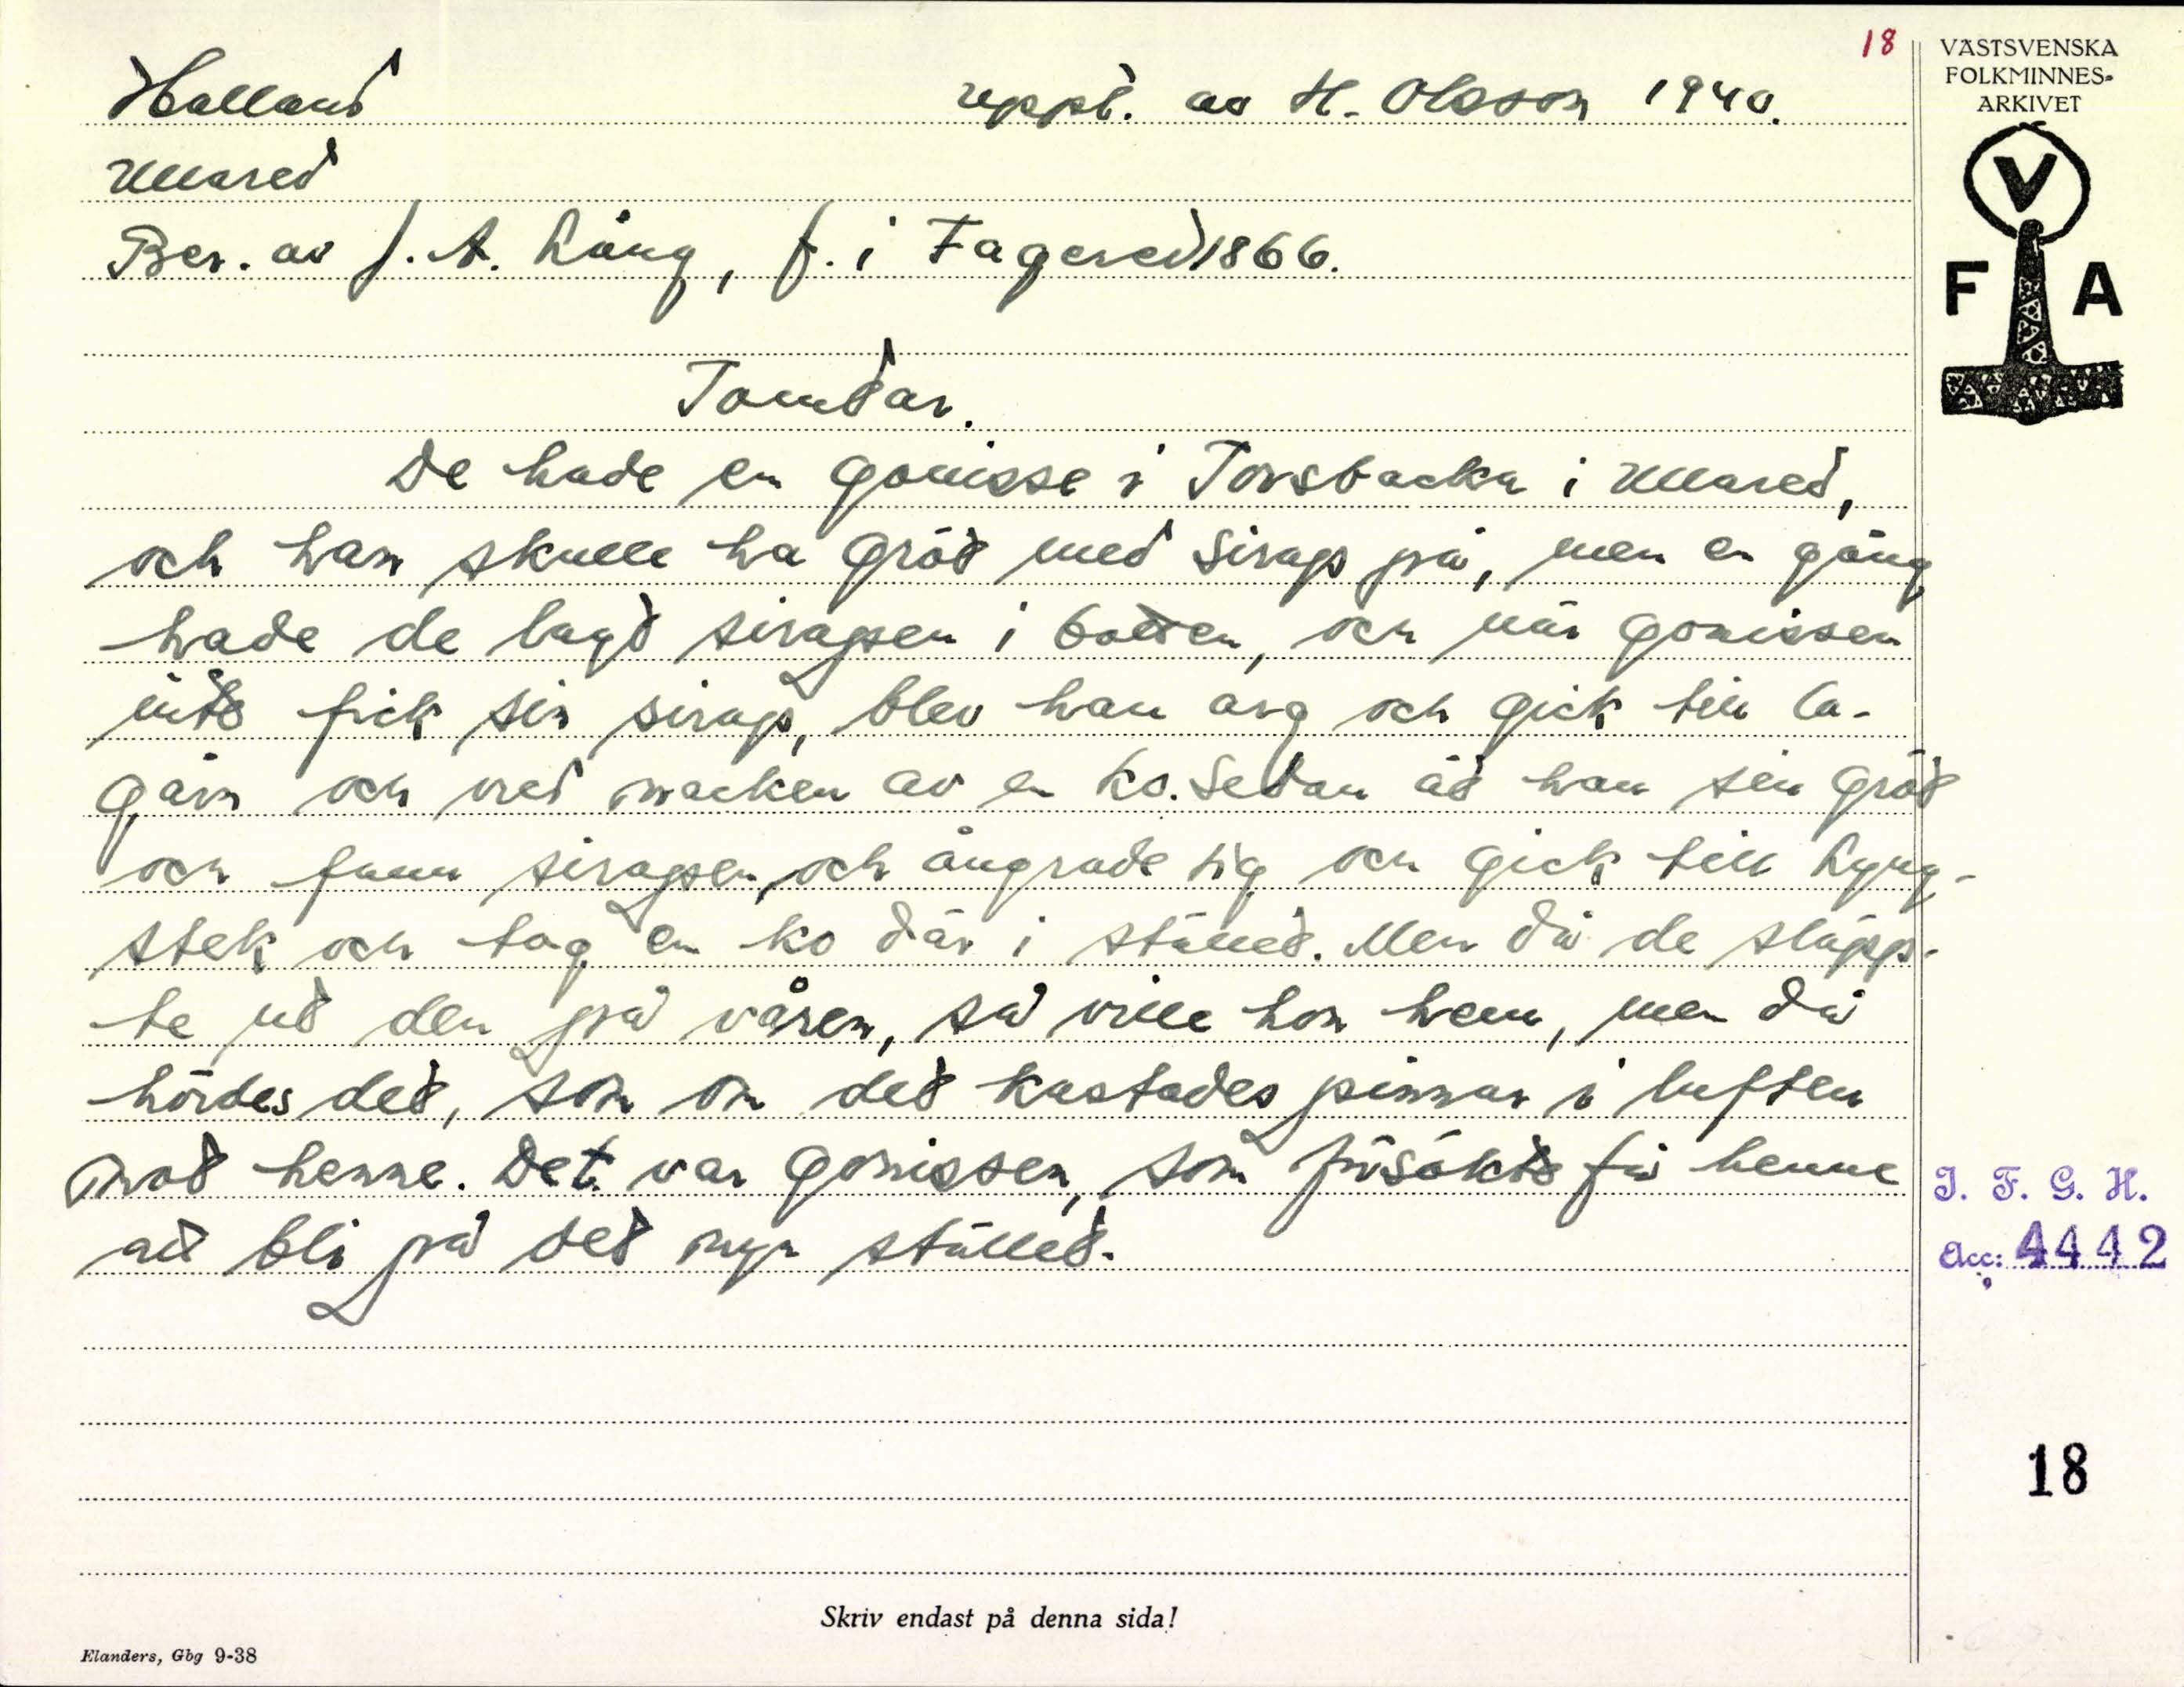 18
VÄSTSVENSKA
FOLKMINNES-
ARKIVET
V
F A
Halland
uppt. av H. Olsson 1940.
Ullared
Ber. av J. A. Lång, f. i Fagered 1866.
Tomtar.
De hade en gonisse i Torsbacka i Ullared,
och han skulle ha gröt med sirap på, men en gång
hade de lagt sirapen i botten, och när gonissen
inte fick sin sirap, blev han arg och gick till la-
gårn och vred nacken av en ko. Sedan åt han sin gröt
och fann sirapen, och ångrade sig och gick till Lyng-
stek och tog en ko där i stället. Men då de släpp-
te ut den på våren, så ville hon hem, men då
hördes det, som om det kastades pinnar i luften
mot henne. Det var gonissen, som försökte få henne
att bli på det nya stället.
I. F. G. H.
Acc: 4442
18
Skriv endast på denna sida!
Elanders, Gbg 9-38